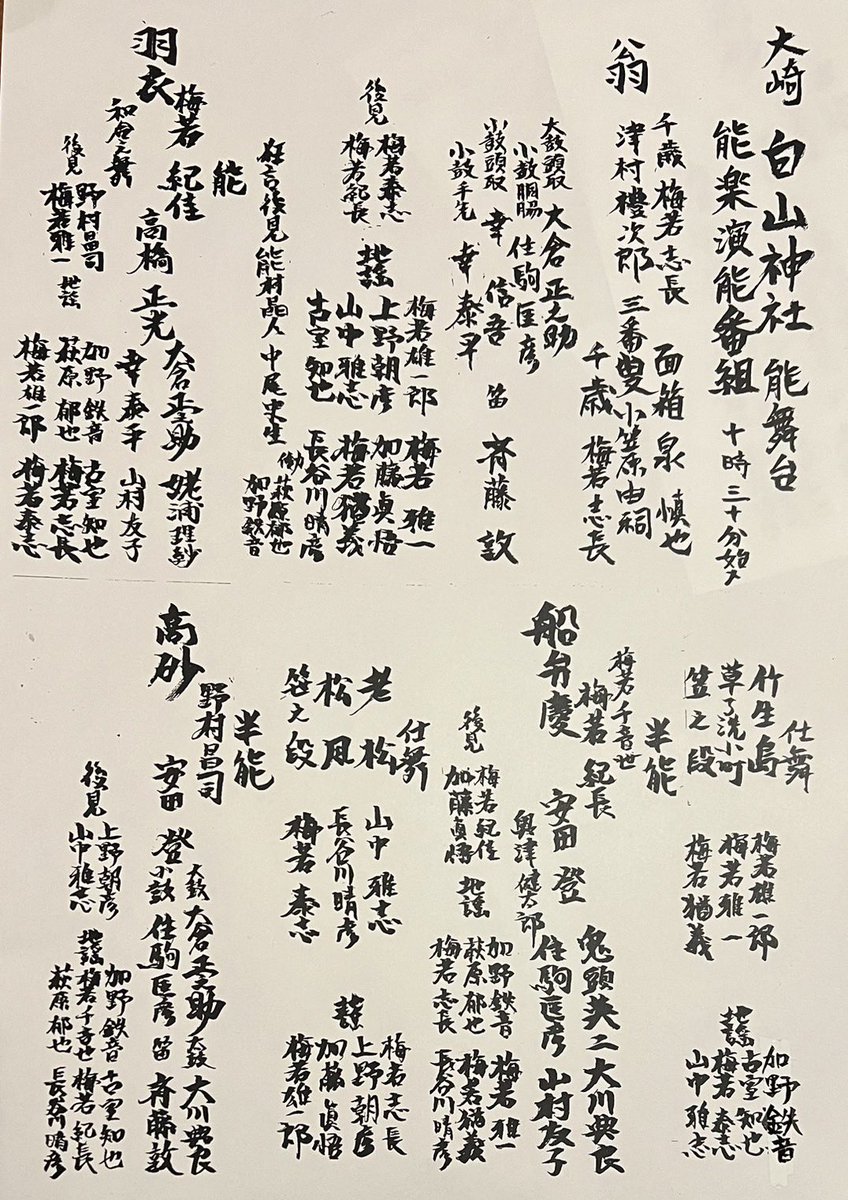 大崎 白山神社 能舞台
能楽演能番組 十時三十分始
翁
千歳 梅若志長 面箱 泉 慎也
津村禮次郎 三番叟 小笠原由祠
千歳 梅若志長
大鼓頭取 大倉正之助
小鼓胴脇 住駒匡彦
小鼓頭取 幸 信吾 笛 斉藤 敦
小鼓手先 幸 泰平
後見 梅若泰志
梅若紀長
地謡
梅若雄一郎 梅若雅一
上野朝彦 加藤眞悟
山中雅志 梅若猶義
古室知也 長谷川晴彦
狂言後見 能村晶人 中尾史生
働 萩原郁也
加野鉄音
能
羽衣
梅若紀佳
和合之舞
高橋正光
大倉正之助 姥浦理紗
幸泰平 山村友子
後見 野村昌司
梅若雅一
地謡
加野鉄音 古室知也
萩原郁也 梅若志長
梅若雄一郎 梅若泰志
仕舞
竹生島 梅若雄一郎
草子洗小町 梅若雅一
笠之段 梅若猶義
地謡
加野鉄音
古室知也
梅若泰志
山中雅志
半能
船弁慶
梅若千音世
梅若紀長
安田 登
奥津健太郎
鬼頭英二 大川典良
住駒匡彦 山村友子
後見 梅若紀佳
加藤眞悟
地謡
加野鉄音 梅若雅一
萩原郁也 梅若猶義
梅若志長 長谷川晴彦
仕舞
老松 山中雅志
松風 長谷川晴彦
笠之段 梅若泰志
地謡
梅若志長
上野朝彦
加藤眞悟
梅若雄一郎
半能
高砂
野村昌司
安田 登
大鼓 大倉正之助 太鼓 大川典良
小鼓 住駒匡彦 笛 斉藤敦
後見 上野朝彦
山中雅志
地謡
加野鉄音 古室知也
梅若千音世 梅若紀長
萩原郁也 長谷川晴彦